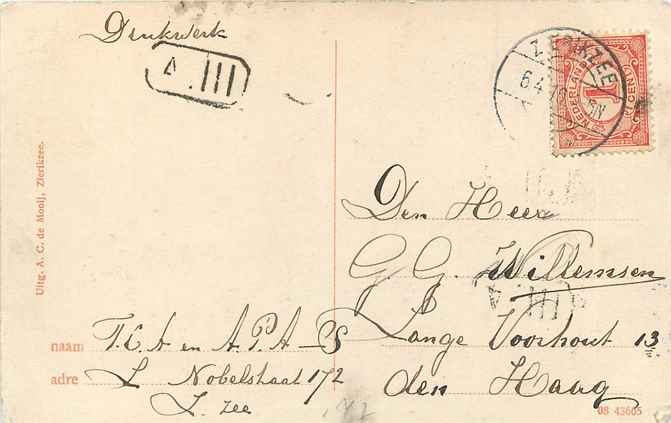 Drukwerk
A. III
ZIERIKZEE
6.4
NEDERLAND
1
CENT
Uitg. A. C. de Mooij, Zierikzee.
Den Heer
G. G. Willemsen
Lange Voorhout 13
den Haag
naam T. C. A en A. P. A - S
adre L Nobelstraat 172
Z. zee
08 43605